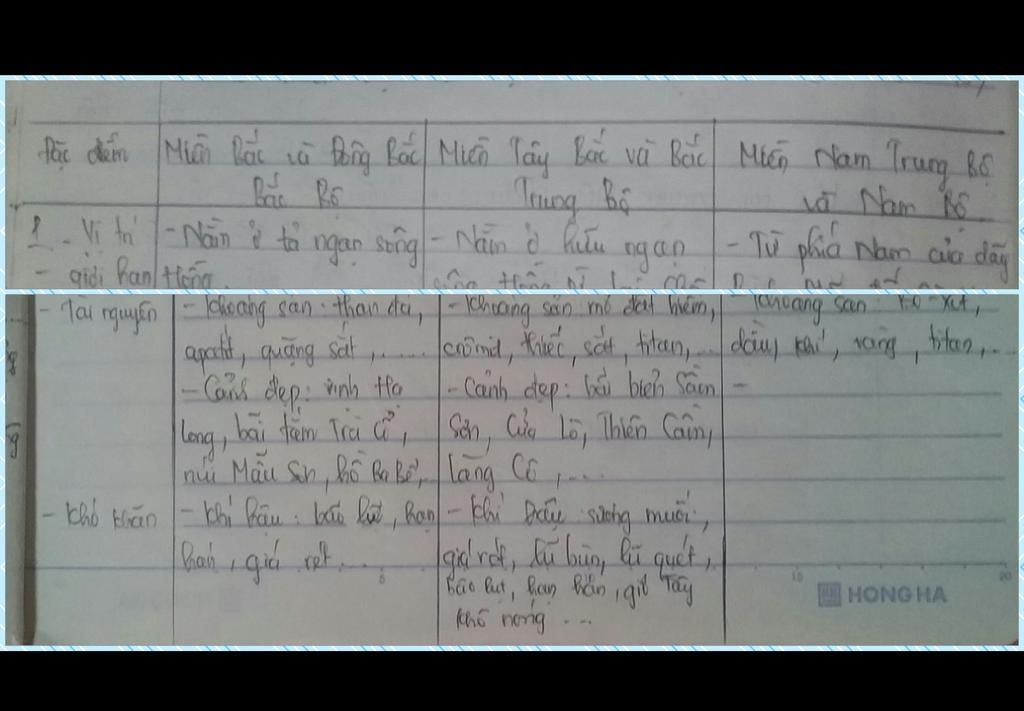 Đặc điểm
Miền Bắc và Đông Bắc
Bắc Bộ
Miền Tây Bắc và Bắc
Trung Bộ
Miền Nam Trung Bộ
và Nam Bộ
1. Vị trí
- giới hạn
- Nằm ở tả ngạn sông
Hồng
- Nằm ở hữu ngạn
sông Hồng
- Từ phía Nam của dãy
- Tài nguyên
- Khoáng sản: than đá,
apatit, quặng sắt, .....
- Cảnh đẹp: vịnh Hạ
Long, bãi tắm Trà Cổ,
núi Mẫu Sơn, hồ Ba Bể,
- Khoáng sản mỏ đất hiếm,
crômit, thiếc, sắt, titan, ...
- Cảnh đẹp: bãi biển Sầm
Sơn, Cửa Lò, Thiên Cầm,
Lăng Cô, ...
- Khoáng sản: Bô-xit,
dầu, khí, vàng, titan, ...
-
- Khó khăn
- Khí hậu: bão lụt, hạn
hán, giá rét ...
- Khí hậu: sương muối,
giá rét, lũ bùn, lũ quét,
bão lụt, hạn hán, gió Tây
khô nóng ...
5
15
20
HONG HA